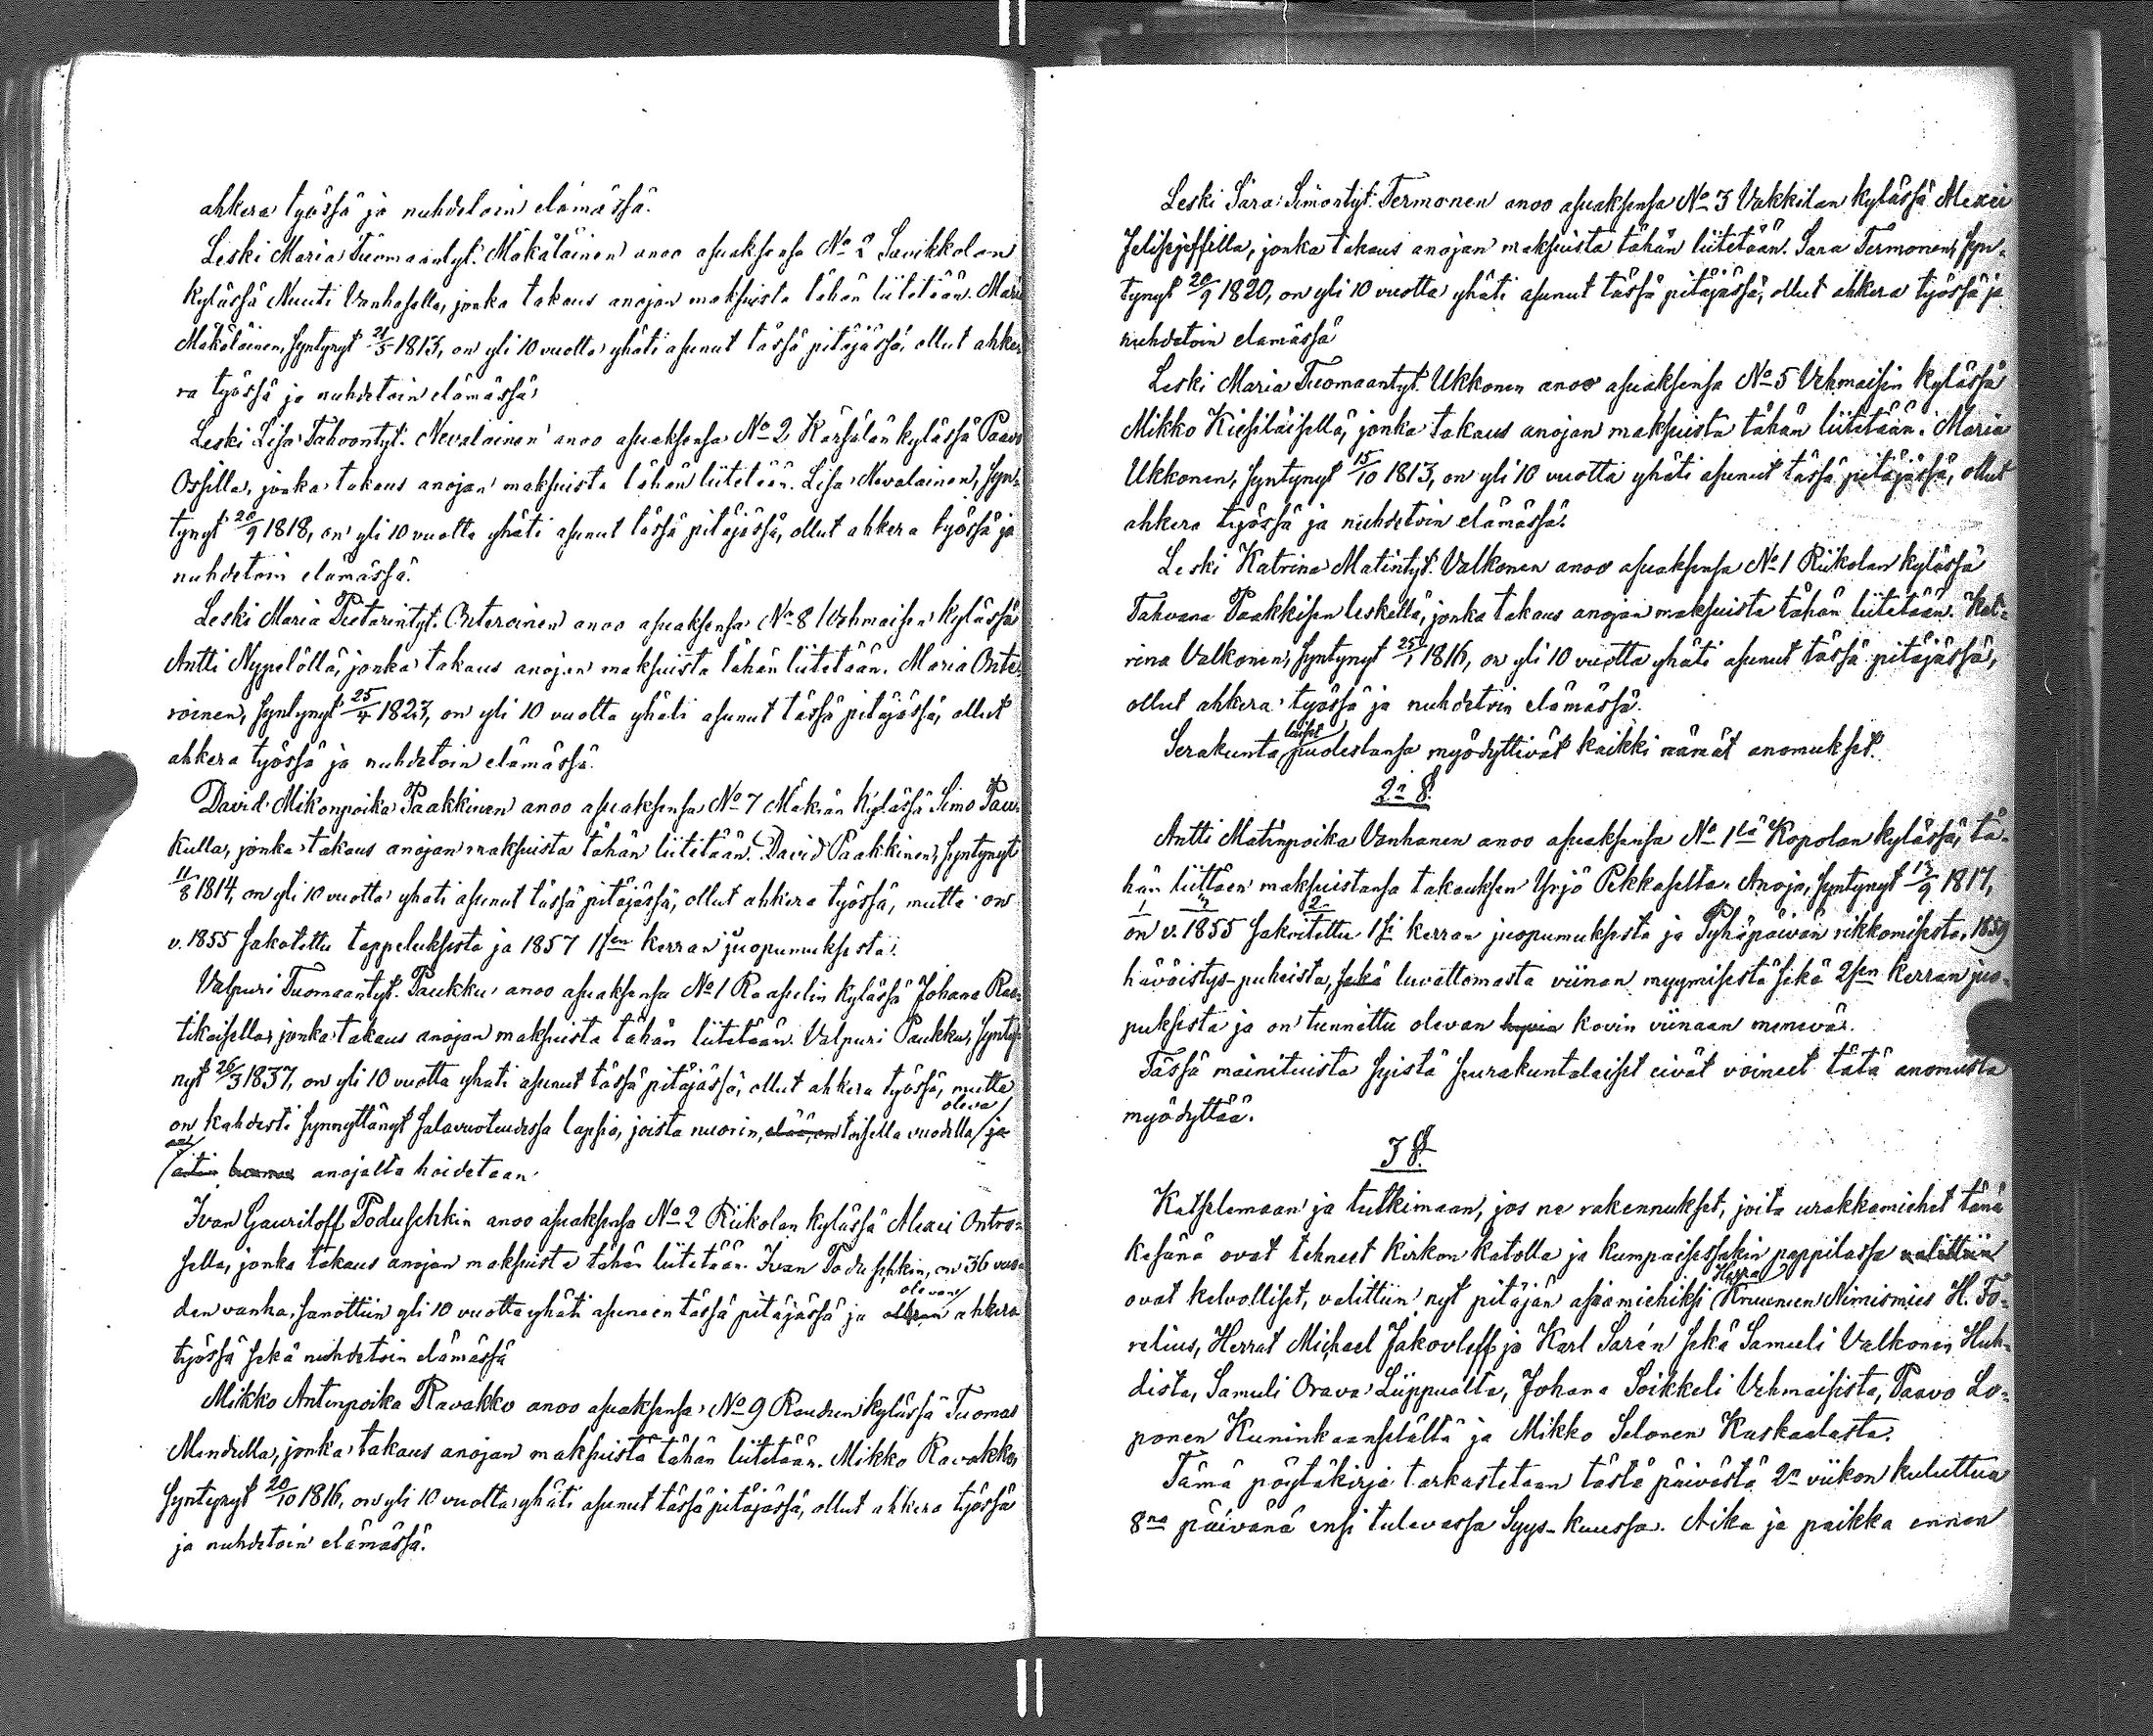 ahkera työssä ja nuhdetoin elämässä.
Leski Maria Tuomaantyt. Mäkäläinen anoo asuaksensa No 2 Savikkolan
kylässä Nuuti Vanhasella, jonka takaus anojan maksuista tähän liitetään. Maria
Mäkäläinen, syntynyt 21/5 1813, on yli 10 vuotta yhäti asunut tässä pitäjässä, ollut ahke-
ra työssä ja nuhdetoin elämässä.
Leski Lisa Tahvontyt. Nevalainen anoo asuaksensa No 2 Kärsälän kylässä Paavo
Ossilla, jonka takaus anojan maksuista tähän liitetään. Lisa Nevalainen, syn-
tynyt 20/9 1818, on yli 10 vuotta yhäti asunut tässä pitäjässä, ollut ahkera työssä ja
nuhdetoin elämässä.
Leski Maria Pietarintyt. Onteroinen anoo asuaksensa No 8 Vehmaisen kylässä
Antti Nyypelöllä, jonka takaus anojan maksuista tähän liitetään. Maria Onte-
roinen, syntynyt 25/4 1823, on yli 10 vuotta yhäti asunut tässä pitäjässä, ollut
ahkera työssä ja nuhdetoin elämässä.
David Mikonpoika Paakkinen anoo asuaksensa No 7 Mäkiän kylässä Simo Pau-
kulla, jonka takaus anojan maksuista tähän liitetään. David Paakkinen, syntynyt
11/8 1814, on yli 10 vuotta yhäti asunut tässä pitäjässä, ollut ahkera työssä, mutta on
v. 1855 sakotettu tappeluksista ja 1857 1sen kerran juopumuksesta.
Valpuri Tuomaantyt. Paukku anoo asuaksensa No 1 Raasulin kylässä Johana Rau-
tikaisella, jonka takaus anojan maksuista tähän liitetään. Valpuri Paukku, synty-
nyt 26/3 1837, on yli 10 vuotta yhäti asunut tässä pitäjässä, ollut ahkera työssä, mutta
oleva
on kahdesti synnyttänyt salavuoteudessa lapsia, joista nuorin, elää, on toisella vuodella / ja
äitin anojalta hoidetaan.
Ivan Gauriloff Poduschkin anoo asuaksensa No 2 Riikolan kylässä Alexei Ontro-
sella, jonka takaus anojan maksuista tähän liitetään. Ivan Poduschkin, on 36 vuo-
olevan
den vanha, sanottiin yli 10 vuotta yhäti asuneen tässä pitäjässä ja olleen ahkera
työssä sekä nuhdetoin elämässä
Mikko Antinpoika Ravakko anoo asuaksensa No 9 Raudun kylässä Tuomas
Mendulla, jonka takaus anojan maksuista tähän liitetään. Mikko Ravakko,
syntynyt 20/10 1816, on yli 10 vuotta yhäti asunut tässä pitäjässä, ollut ahkera työssä
ja nuhdetoin elämässä.
Leski Sara Simontyt. Termonen anoo asuaksensa No 3 Vakkilan kylässä Alexei
Jelisejeffilla, jonka takaus anojan maksuista tähän liitetään. Sara Termonen, syn-
tynyt 20/9 1820, on yli 10 vuotta yhäti asunut tässä pitäjässä, ollut ahkera työssä ja
nuhdetoin elämässä
Leski Maria Tuomaantyt. Ukkonen anoo asuaksensa No 5 Vehmaisin kylässä
Mikko Kiesiläisellä, jonka takaus anojan maksuista tähän liitetään. Maria
Ukkonen, syntynyt 15/10 1813, on yli 10 vuotta yhäti asunut tässä pitäjässä, ollut
ahkera työssä ja nuhdetoin elämässä.
Leski Katrina Matintyt. Valkonen anoo asuaksensa No 1 Riikolan kylässä
Tahvana Paakkisen leskellä, jonka takaus anojan maksuista tähän liitetään. Kat-
rina Valkonen, syntynyt 25/1 1816, on yli 10 vuotta yhäti asunut tässä pitäjässä,
ollut ahkera työssä ja nuhdetoin elämässä.
laiset
Serakunta puolestansa myödyttivät kaikki nämät anomukset.
2n §.
Antti Matinpoika Vanhanen anoo asuaksensa No 1llä Kopolan kylässä, tä-
hän liittäen maksuistansa takauksen Yrjö Pekkaselta. Anoja, syntynyt 13/9 1817,
on v. 1855 sakoitettu 1si kerran juopumuksesta ja Pyhäpäivän rikkomisesta, 1859
häväistys-puheista, sekä luvattomasta viinan myymisestä sekä 2sen kerran juo-
puksesta ja on tunnettu olevan hyvin kovin viinaan menevä.
Tässä mainituista syistä seurakuntalaiset eivät voineet tätä anomusta
myödyttää.
3 §.
Katselemaan ja tutkimaan, jos ne rakennukset, joita urakkamiehet tänä
kesänä ovat tehneet kirkon katolla ja kumpaisessakin pappilassa valittiin
Herra
ovat kelvolliset, valittiin nyt pitäjän asiamiehiksi Kruunun Nimismies H. Fo-
relius, Herrat Michael Jakovleff ja Karl Sarén sekä Samuli Valkonen Huh-
dista, Samuli Orava Liippualta, Johana Soikkeli Vehmaisista, Paavo Lo-
ponen Kuninkaanselältä ja Mikko Selonen Kaskaalasta.
Tämä pöytäkirja tarkastetaan tästä päivästä 2n viikon kuluttua
8na päivänä ensi tulevassa Syys-kuussa. Aika ja paikka ennen